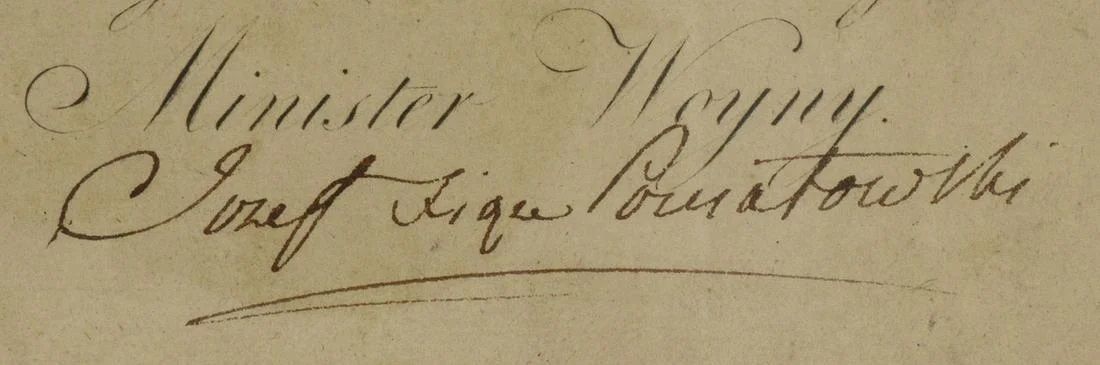 Minister Woyny.
Jozef Xiąże Poniatowski